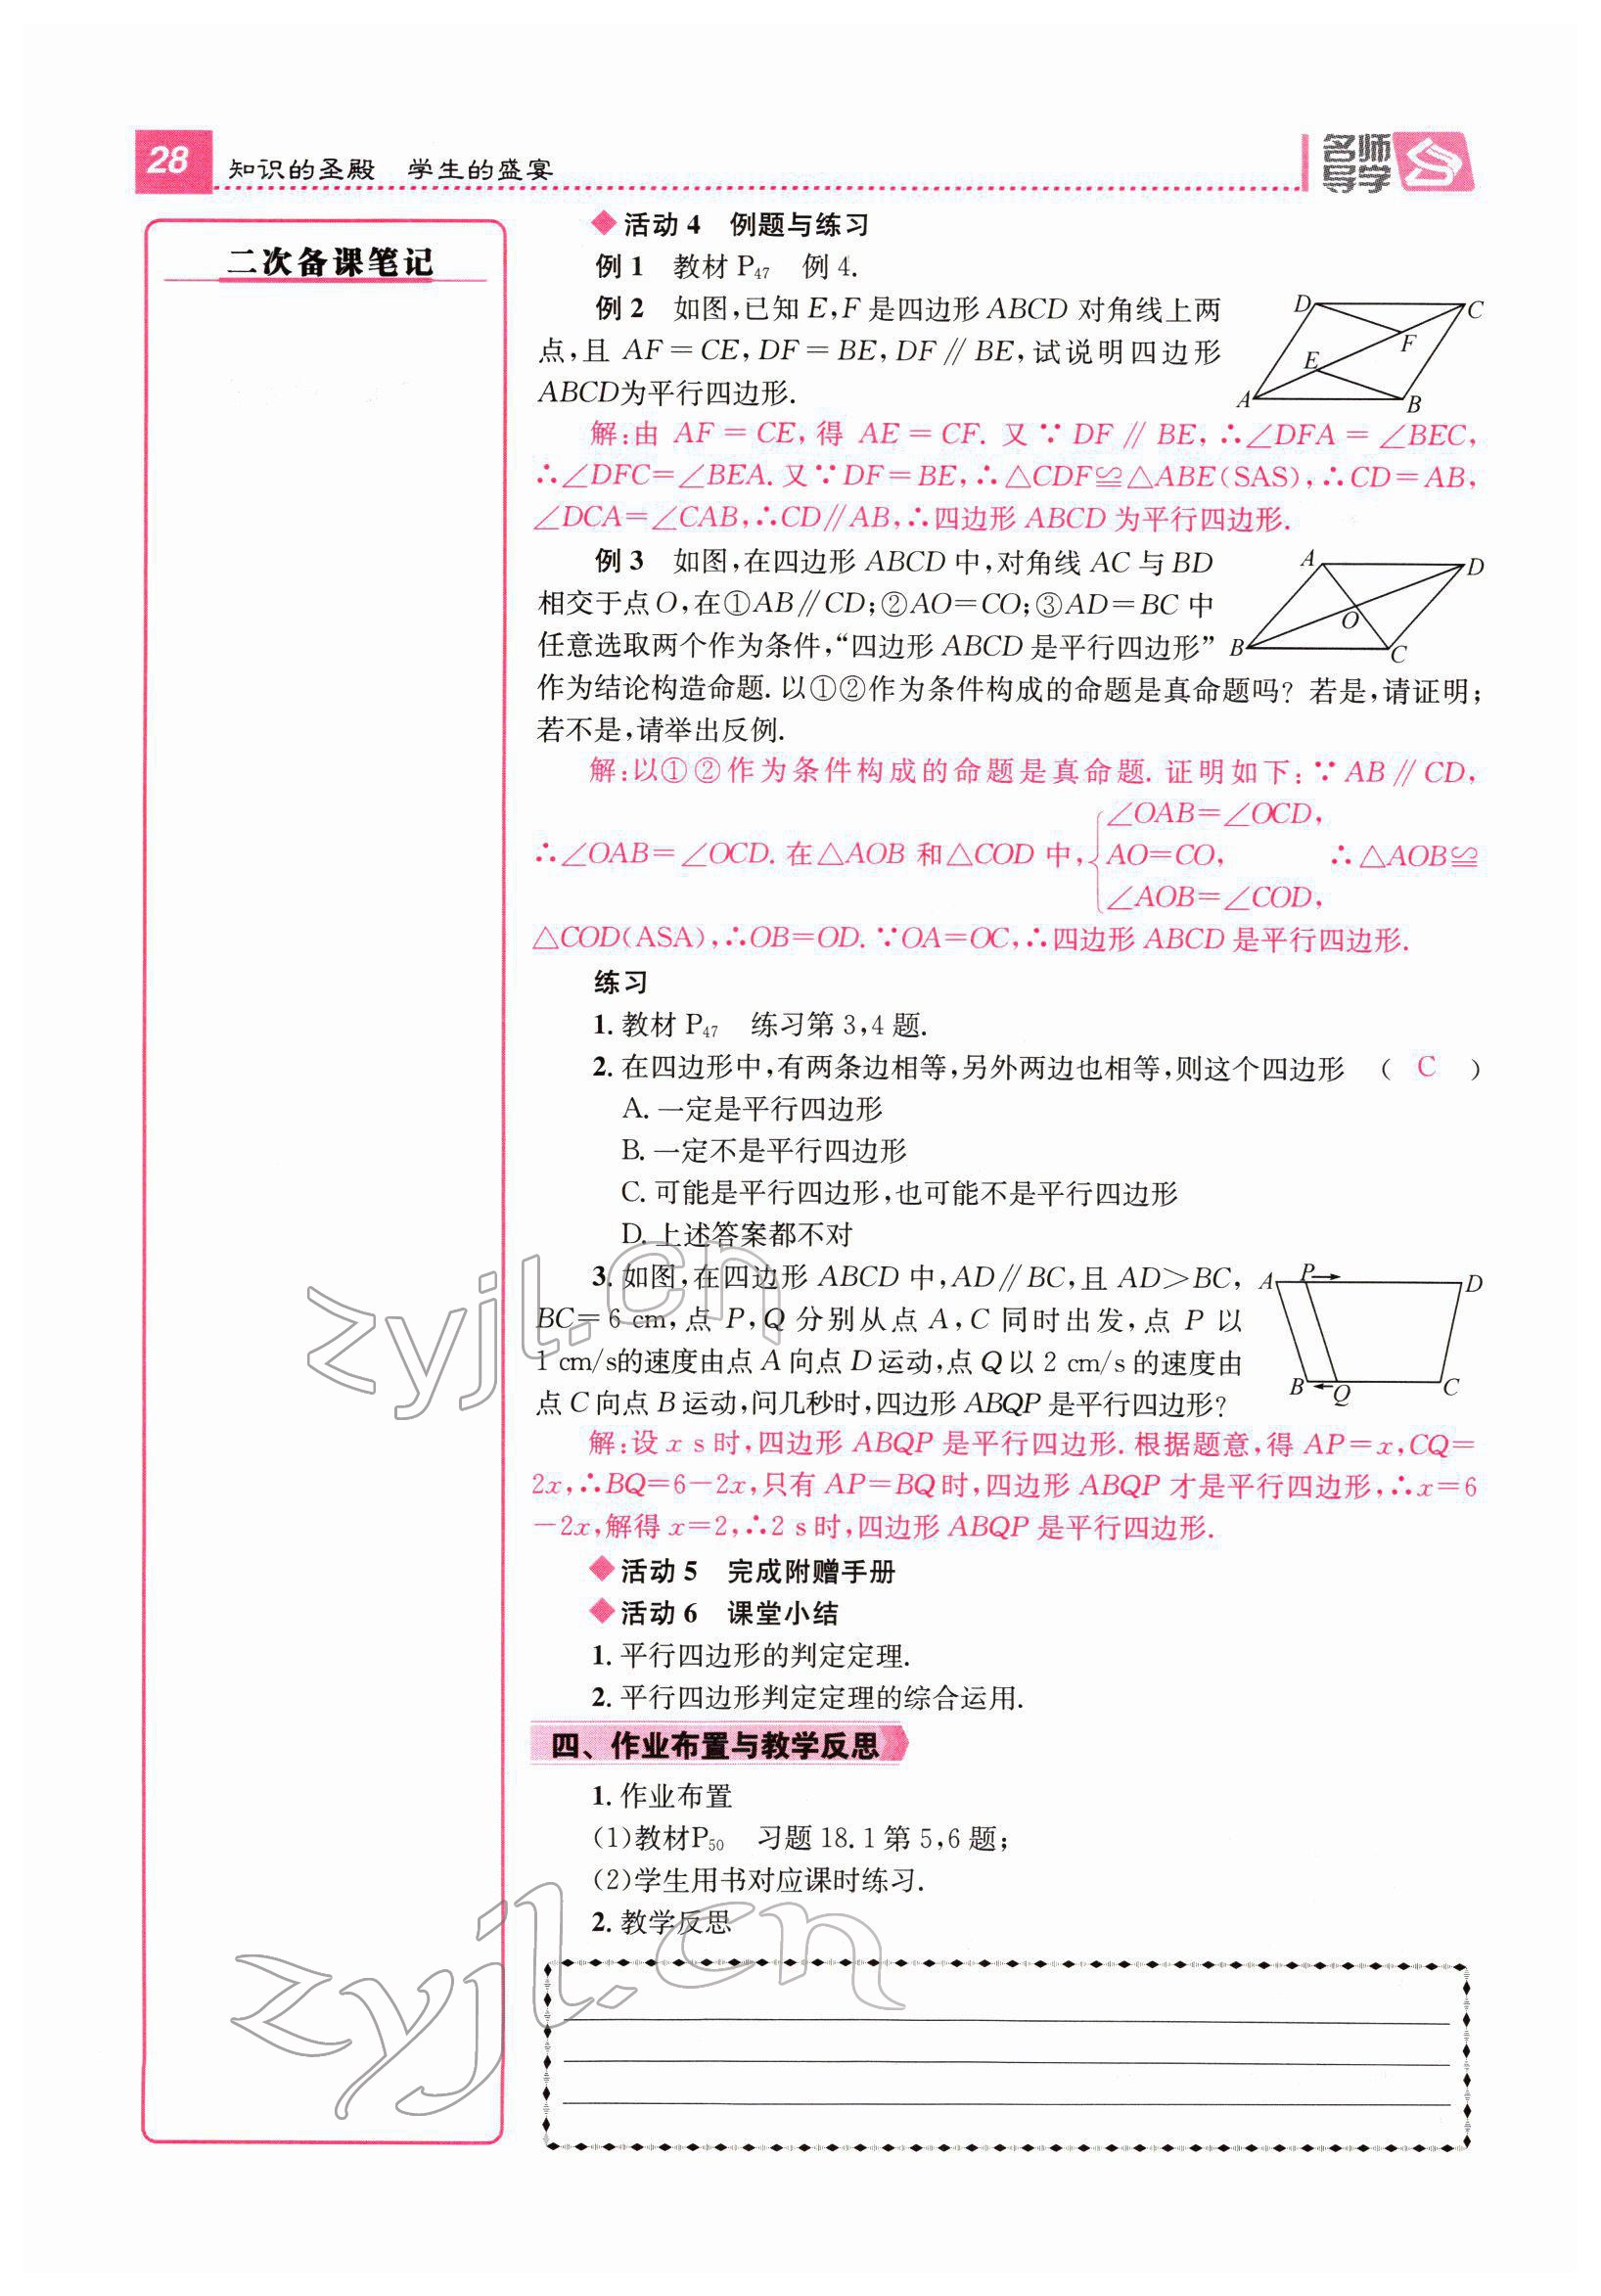 28 知识的圣殿 学生的盛宴
名师导学
二次备课笔记
◆活动 4 例题与练习
例 1 教材 P47 例 4.
例 2 如图,已知 E,F 是四边形 ABCD 对角线上两
点,且 AF=CE,DF=BE,DF∥BE,试说明四边形
ABCD为平行四边形.
D C F E A B
解:由 AF=CE,得 AE=CF.又∵DF∥BE,∴∠DFA=∠BEC,
∴∠DFC=∠BEA.又∵DF=BE,∴△CDF≌△ABE(SAS),∴CD=AB,
∠DCA=∠CAB,∴CD∥AB,∴四边形 ABCD 为平行四边形.
例 3 如图,在四边形 ABCD 中,对角线 AC 与 BD
相交于点 O,在①AB∥CD;②AO=CO;③AD=BC 中
任意选取两个作为条件,“四边形 ABCD 是平行四边形”
作为结论构造命题.以①②作为条件构成的命题是真命题吗?若是,请证明;
若不是,请举出反例.
A D O B C
解:以①②作为条件构成的命题是真命题.证明如下:∵AB∥CD,
∠OAB=∠OCD,
∴∠OAB=∠OCD.在△AOB 和△COD 中,AO=CO, ∴△AOB≌
∠AOB=∠COD,
△COD(ASA),∴OB=OD.∵OA=OC,∴四边形 ABCD 是平行四边形.
练习
1.教材 P47 练习第 3,4 题.
2.在四边形中,有两条边相等,另外两边也相等,则这个四边形 ( C )
A.一定是平行四边形
B.一定不是平行四边形
C.可能是平行四边形,也可能不是平行四边形
D.上述答案都不对
3.如图,在四边形 ABCD 中,AD∥BC,且 AD>BC,
BC=6 cm,点 P,Q 分别从点 A,C 同时出发,点 P 以
1 cm/s的速度由点 A 向点 D 运动,点 Q 以 2 cm/s 的速度由
点 C 向点 B 运动,问几秒时,四边形 ABQP 是平行四边形?
A P D B Q C
解:设 x s 时,四边形 ABQP 是平行四边形.根据题意,得 AP=x,CQ=
2x,∴BQ=6-2x,只有 AP=BQ 时,四边形 ABQP 才是平行四边形,∴x=6
-2x,解得 x=2,∴2 s 时,四边形 ABQP 是平行四边形.
◆活动 5 完成附赠手册
◆活动 6 课堂小结
1.平行四边形的判定定理.
2.平行四边形判定定理的综合运用.
四、作业布置与教学反思
1.作业布置
(1)教材P50 习题 18.1 第 5,6 题;
(2)学生用书对应课时练习.
2.教学反思
zyjl.cn
zyjl.cn